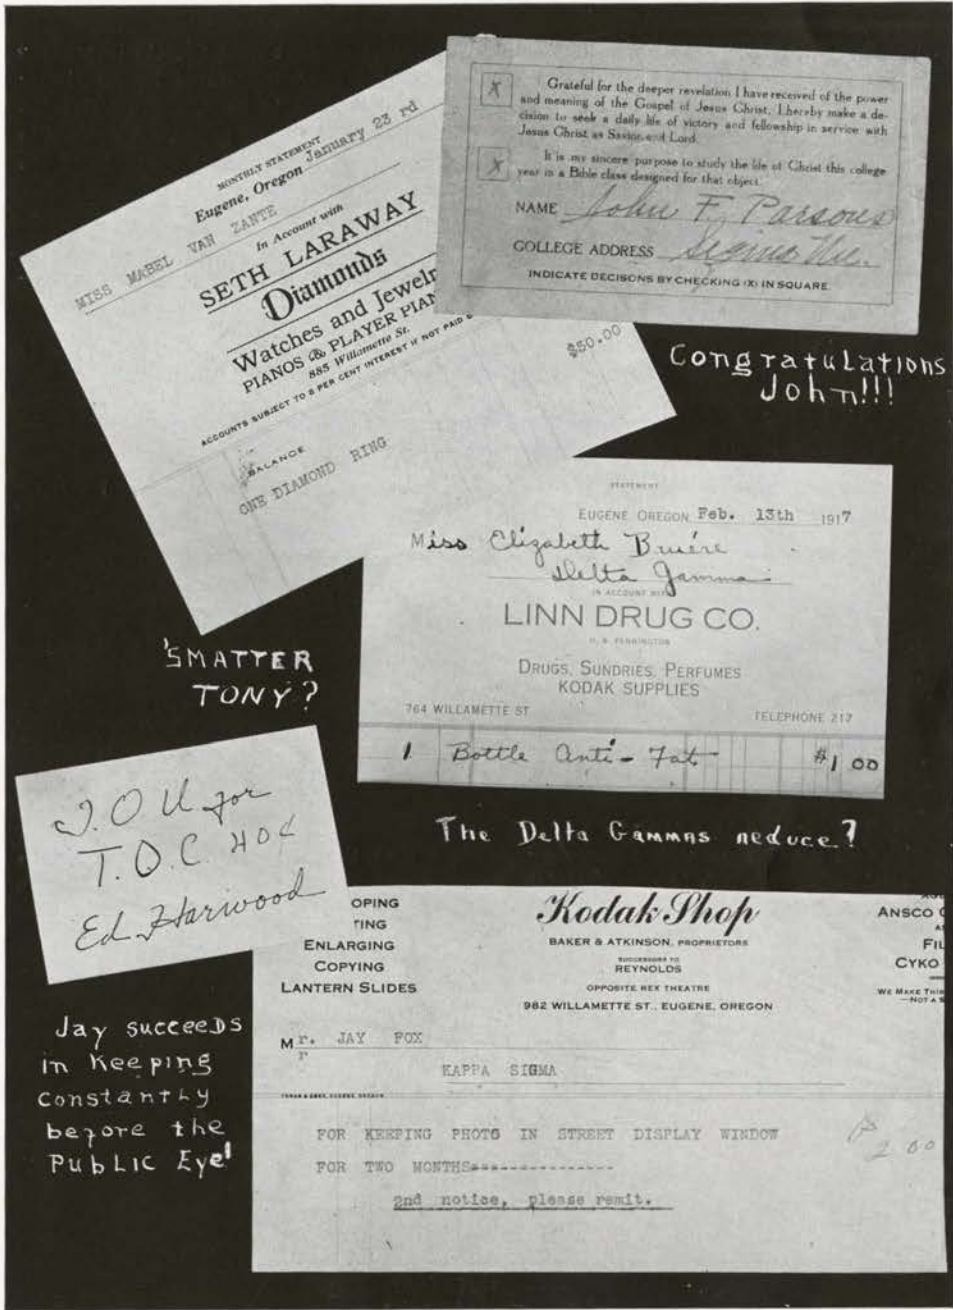 MONTHLY STATEMENT
Eugene, Oregon January 23 rd
MISS MABEL VAN ZANTE
In Account with
SETH LARAWAY
Diamonds
Watches and Jewelr
PIANOS & PLAYER PIAN
885 Willamette St.
ACCOUNTS SUBJECT TO 8 PER CENT INTEREST IF NOT PAID
$50.00
BALANCE
ONE DIAMOND RING
X Grateful for the deeper revelation I have received of the power
and meaning of the Gospel of Jesus Christ, I hereby make a de-
cision to seek a daily life of victory and fellowship in service with
Jesus Christ as Savior and Lord.
X It is my sincere purpose to study the life of Christ this college
year in a Bible class designed for that object.
NAME John F. Parsons
COLLEGE ADDRESS Sigma Nu.
INDICATE DECISONS BY CHECKING (X) IN SQUARE.
Congratulations
John!!!
STATEMENT
EUGENE OREGON Feb. 13th 1917
Miss Elizabeth Bruére
Delta Gamma
IN ACCOUNT WITH
LINN DRUG CO.
PENNINGTON
DRUGS, SUNDRIES, PERFUMES
KODAK SUPPLIES
764 WILLAMETTE ST
TELEPHONE 217
1 Bottle Anti-Fat $1 00
'SMATTER
TONY?
The Delta Gammas reduce?
I.O.U for
T.O.C. 40¢
Ed Harwood
OPING
TING
ENLARGING
COPYING
LANTERN SLIDES
Kodak Shop
BAKER & ATKINSON, PROPRIETORS
SUCCESSORS TO
REYNOLDS
OPPOSITE REX THEATRE
982 WILLAMETTE ST., EUGENE, OREGON
ANSCO
FIL
CYKO
WE MAKE THIN
—NOT A S
Mr. JAY FOX
r
KAPPA SIGMA
FOR KEEPING PHOTO IN STREET DISPLAY WINDOW
FOR TWO MONTHS----------------
2 00
2nd notice, please remit.
Jay succeeds
in Keeping
constantly
before the
Public Eye!